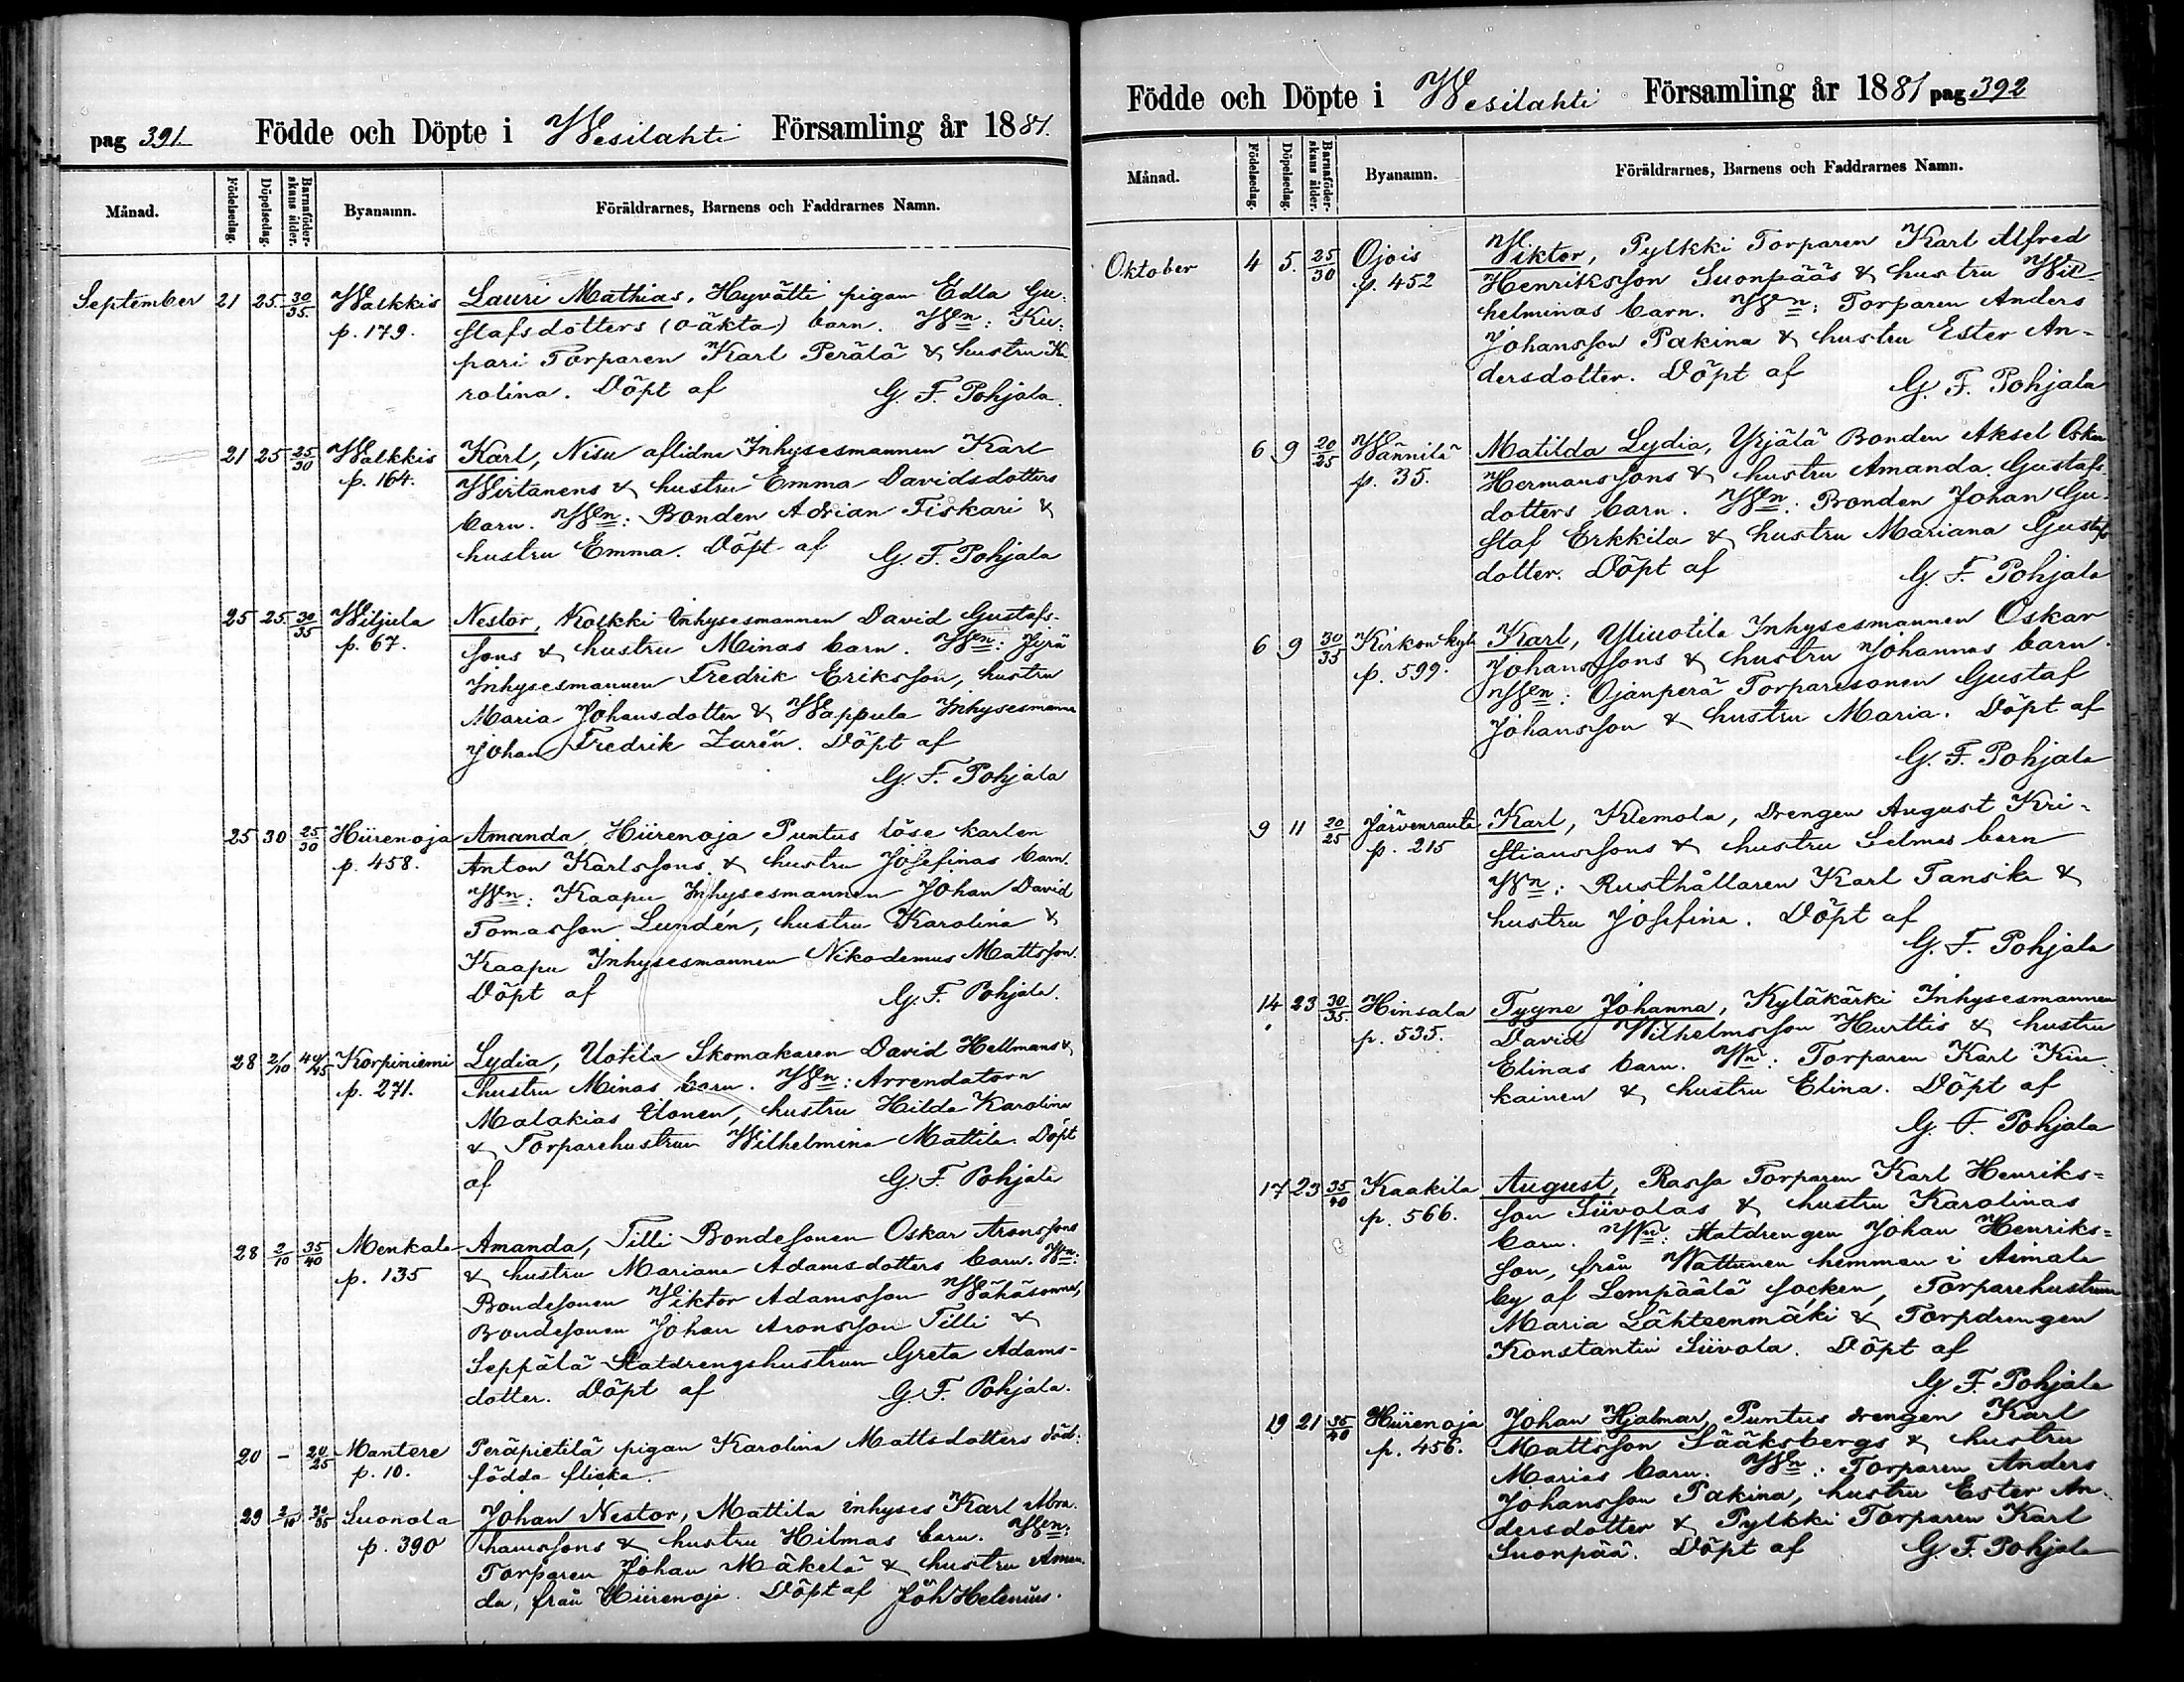 pag 391. Födde och Döpte i Wesilahti Församling år 1881.
Månad. Födelsedag. Döpelsedag. Barnaföderskans ålder. Byanamn. Föräldrarnes, Barnens och Faddrarnes Namn.
September 21 25. 30/35 Walkkis Lauri Mathias, Hyvätti pigan Edla Gu-
p. 179. stafsdotters (oäkta) barn. Wn: Ku-
pari Torparen Karl Perälä & hustru Ka
rolina. Döpt af G. F. Pohjala.
21 25 25/30 Walkkis Karl, Nisu aflidne Inhysesmannen Karl
p. 164. Wirtanens & hustru Emma Davidsdotters
barn. Wn: Bonden Adrian Fiskari &
hustru Emma. Döpt af G. F. Pohjala
25 25. 30/35 Wiljula Nestor, Kolkki Inhysesmannen David Gustafs-
p. 67. sons & hustru Minas barn. Wn: Jyrä
Inhysesmannen Fredrik Eriksson, hustru
Maria Johansdotter & Wappula Inhysesmannen
Johan Fredrik Zurén. Döpt af
G. F. Pohjala
25 30 25/30 Hiirenoja Amanda, Hiirenoja Puntus löse karlen
p. 458. Anton Karlssons & hustru Josefinas barn.
Wn: Kaapu Inhysesmannen Johan David
Tomasson Lundén, hustru Karolina &
Kaapu Inhysesmannen Nikodemus Mattsson.
Döpt af G. F. Pohjala.
28 2/10 44/45 Korpiniemi Lydia, Uotila Skomakaren David Hellmans &
p. 271. hustru Minas barn. Wn: Arrendatorn
Malakias Ilonen, hustru Hilda Karolina
& Torparehustrun Wilhelmina Mattila. Döpt
af G. F. Pohjala
28 2/10 35/40 Menkala Amanda, Tilli Bondesonen Oskar Aronssons
p. 135 & hustru Mariana Adamsdotters barn. Wn:
Bondesonen Wiktor Adamsson Wähäsonni,
Bondesonen Johan Aronsson Tilli &
Seppälä Statdrengshustrun Greta Adams-
dotter. Döpt af G. F. Pohjala.
20 - 20/25 Mantere Peräpietilä pigan Karolina Mattsdotters död-
p. 10. födda flicka.
29 2/10 30/35 Suonola Johan Nestor, Mattila inhyses Karl Abra-
p. 390 hamssons & hustru Hilmas barn. Wn:
Torparen Johan Mäkelä & hustru Aman-
da, från Hiirenoja. Döpt af Joh Helenius.
Födde och Döpte i Wesilahti Församling år 1881 pag 392
Månad. Födelsedag. Döpelsedag. Barnaföderskans ålder. Byanamn. Föräldrarnes, Barnens och Faddrarnes Namn.
Oktober 4 5. 25/30 Ojois Wiktor, Pylkki Torparen Karl Alfred
p. 452 Henriksson Suonpääs & hustru Wil-
helminas barn. Wn: Torparen Anders
Johansson Pakina & hustru Ester An-
dersdotter. Döpt af G. F. Pohjala
6 9 20/25 Wännilä Matilda Lydia, Yrjälä Bonden Aksel Oskar
p. 35. Hermanssons & hustru Amanda Gustafs-
dotters barn. Wn: Bonden Johan Gu-
staf Erkkila & hustru Mariana Gustafs
dotter. Döpt af G. F. Pohjala
6 9 30/35 Kirkonkyla Karl, Yliuotila Inhysesmannen Oskar
p. 599. Johanssons & hustru Johannas barn.
Wn: Ojanperä Torparesonen Gustaf
Johansson & hustru Maria. Döpt af
G. F. Pohjala
9 11 20/25 Järvenranta Karl, Klemola, Drengen August Kri-
p. 215 stianssons & hustru Selmas barn
Wn: Rusthållaren Karl Tanska &
hustru Josefina. Döpt af
G. F. Pohjala
14 23 30/35. Hinsala Tygne Johanna, Kyläkärki Inhysesmannen
p. 535. David Wilhelmsson Hurttis & hustru
Elinas barn. Wn: Torparen Karl Kiu-
kainen & hustru Elina. Döpt af
G. F. Pohjala
17 23 35/40 Kaakila August, Rassa Torparen Karl Henriks-
p. 566. son Siivolas & hustru Karolinas
barn. Wn: Statdrengen Johan Henriks-
son, från Wattunen hemman i Aimala
by af Lempäälä socken, Torparehustrun
Maria Lähteenmäki & Torpdrengen
Konstantin Siivola. Döpt af
G. F. Pohjala
19 21 35/40 Hiirenoja Johan Hjalmar, Puntus drengen Karl
p. 456. Mattsson Sääksbergs & hustru
Marias barn. Wn: Torparen Anders
Johansson Pakina, hustru Ester An-
dersdotter & Pylkki Torparen Karl
Suonpää. Döpt af G. F. Pohjala